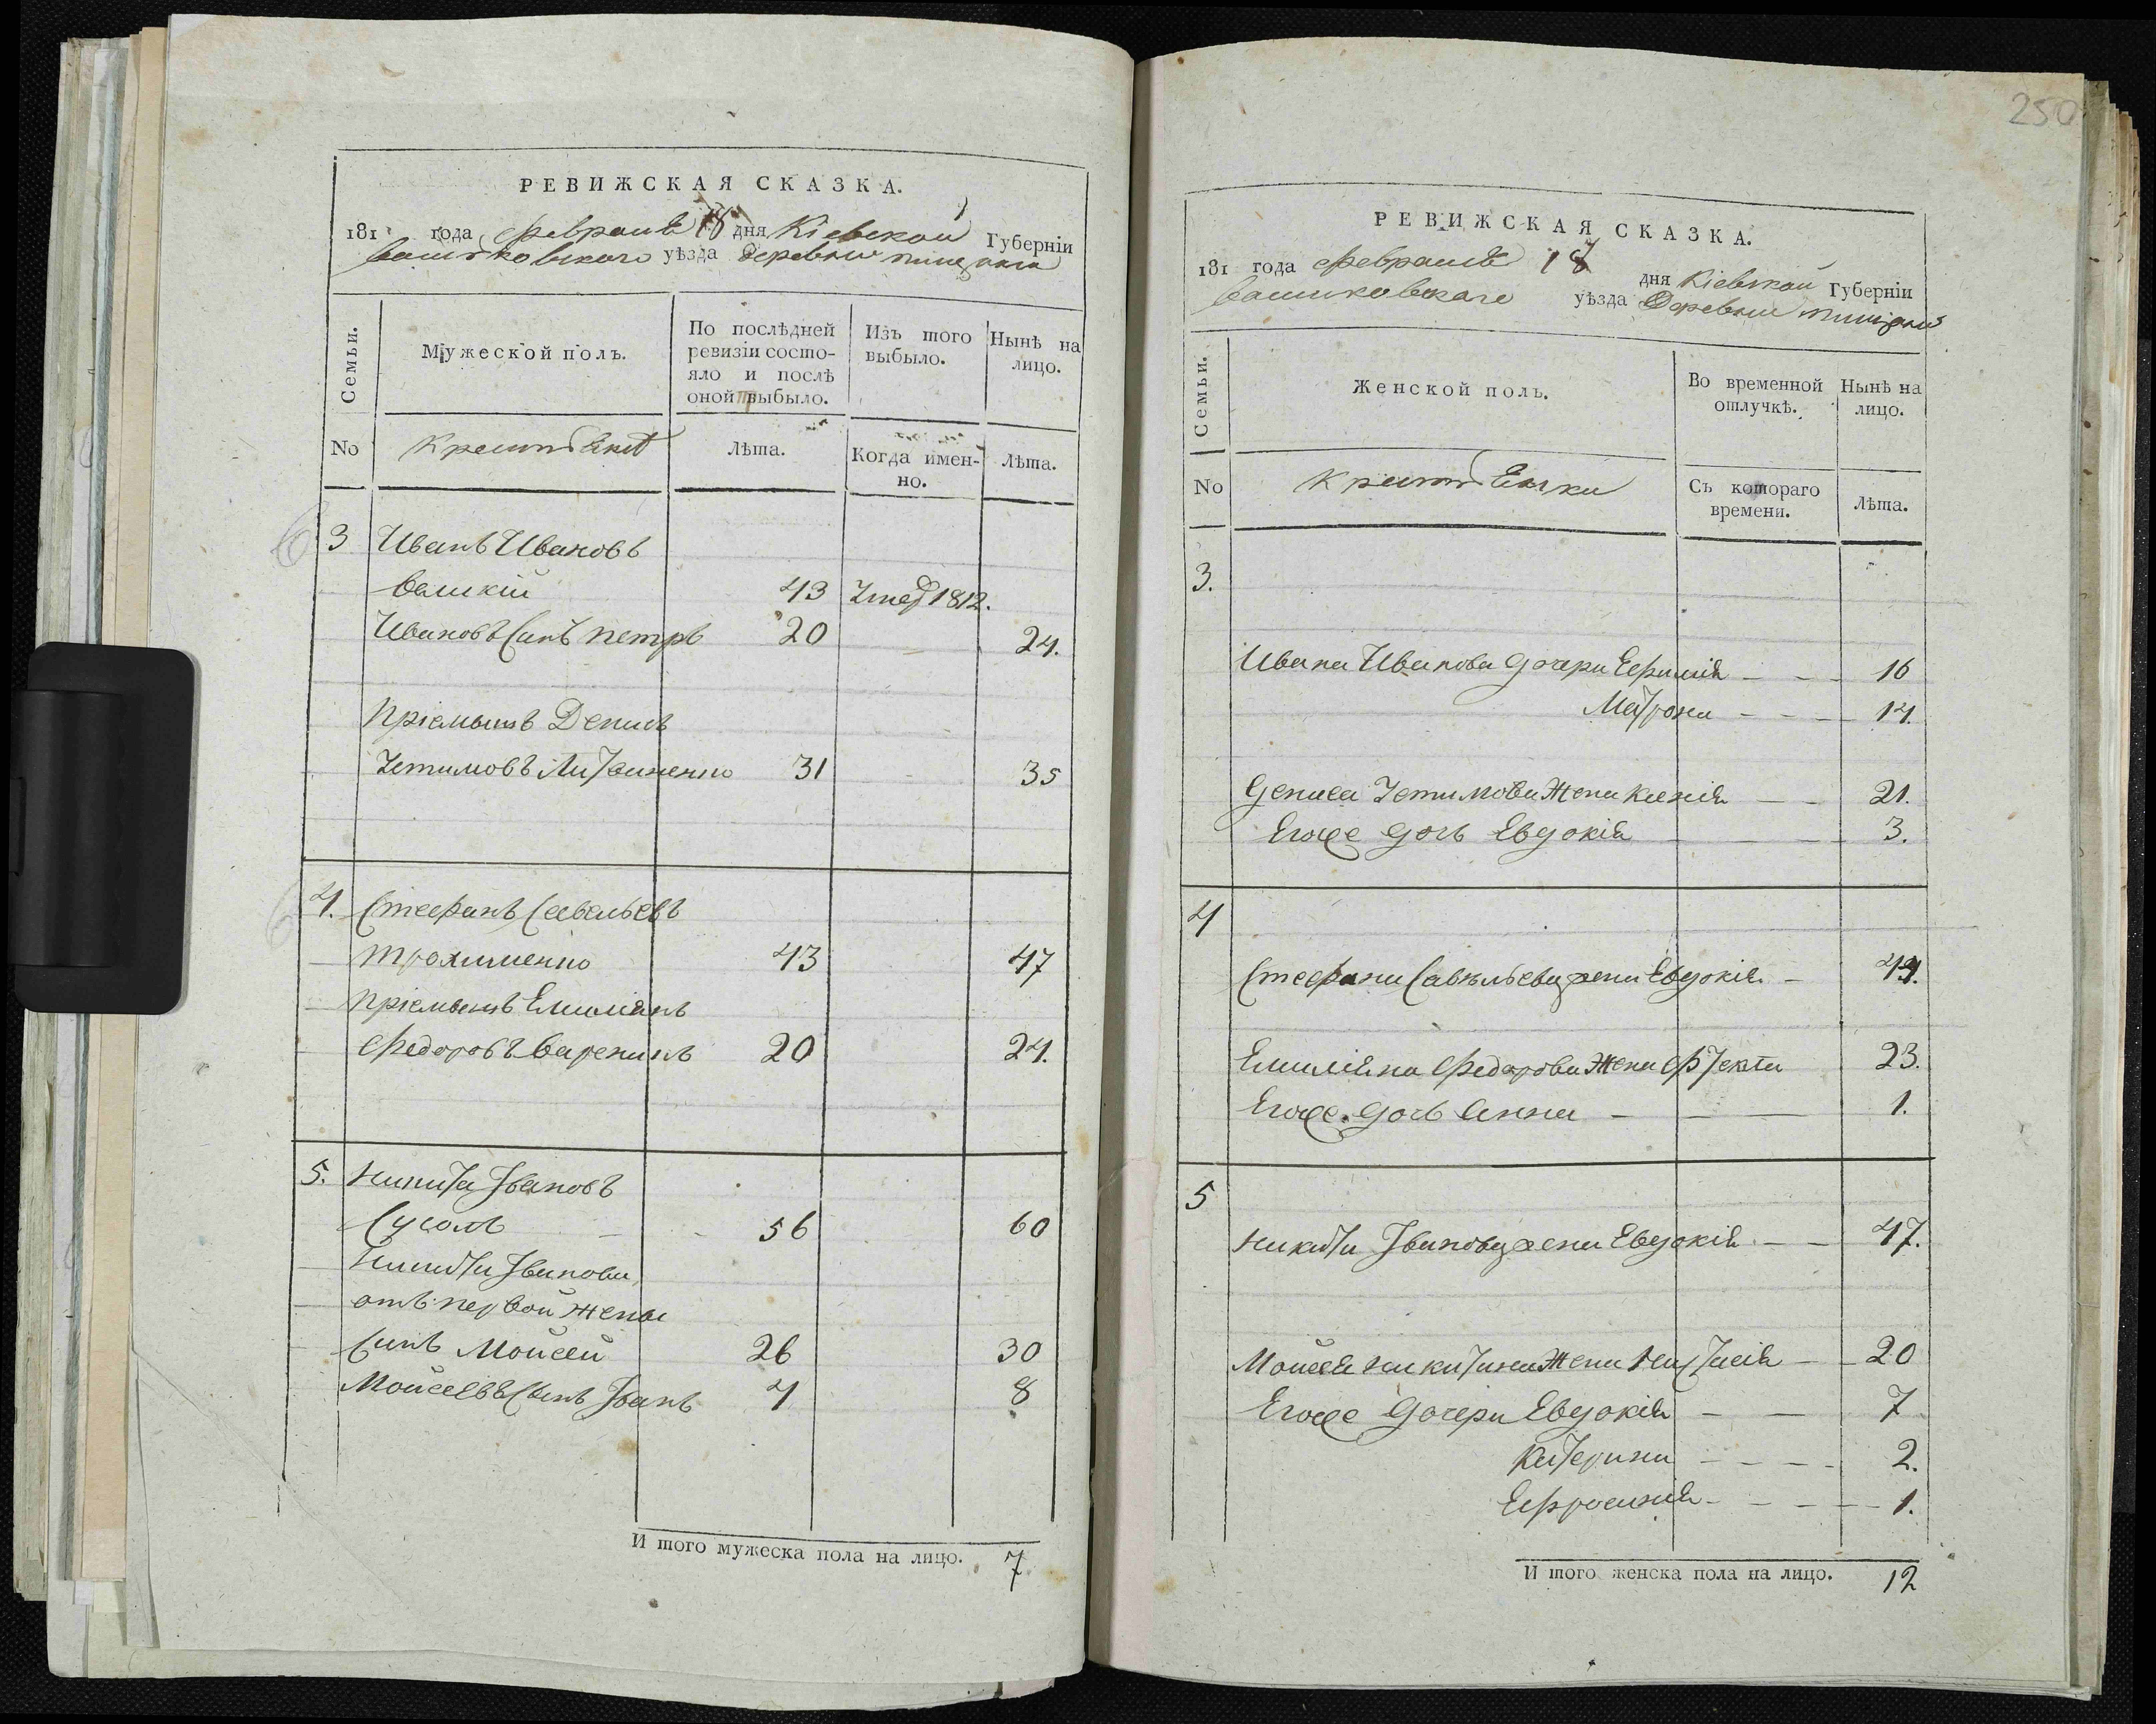 РЕВИЖСКАЯ СКАЗКА.
181 года февраля 18 дня Кіевской Губерніи
васильковскаго уѣзда деревни
Семьи.
Мужеской полъ.
По послѣдней ревизіи состо-
яло и послѣ
оной выбыло.
Изъ того
выбыло.
Нынѣ на
лицо.
No
Крестьянѣ
Лѣта.
Когда имен-
но.
Лѣта.
3 Иванъ Ивановъ
великій 43 Умер 1812.
Ивановъ Синъ петръ 20 24.
пріемышъ Денисъ
Устимовъ Литвиненко 31 35
4. Стефанъ Савельевъ
трохименко 43 47
пріемышъ Емиліянъ
Федоровъ вареникъ 20 24.
5. никита Івановъ
Сусолъ 56 60
никиты Іванова
отъ первой жены
Синъ Мойсей 26 30
Мойсеевъ Сынъ Іванъ 4 8
И того мужеска пола на лицо. 7
250
РЕВИЖСКАЯ СКАЗКА.
181 года февраля 18 дня Кіевской Губерніи
васильковскаго уѣзда Деревни
Семьи.
Женской полъ.
Во временной
отлучкѣ.
Нынѣ на
лицо.
No
Крестьянки
Съ котораго
времени.
Лѣта.
3.
Ивана Иванова дочери Ефимія 16
Матрона 14.
Дениса Устимова Жена Ксенія 21.
Егоже дочь Евдокія 3.
4
Стефана Савельева жена Евдокія 49.
Емиліяна Федорова Жена Фекта 23.
Егоже дочь Анна 1.
5
никиты Іванова жена Евдокія 47.
Мойсея никитина Жена Настасія 20
Егоже Дочери Евдокія 7
Катерина 2.
Ефросинія 1.
И того женска пола на лицо. 12